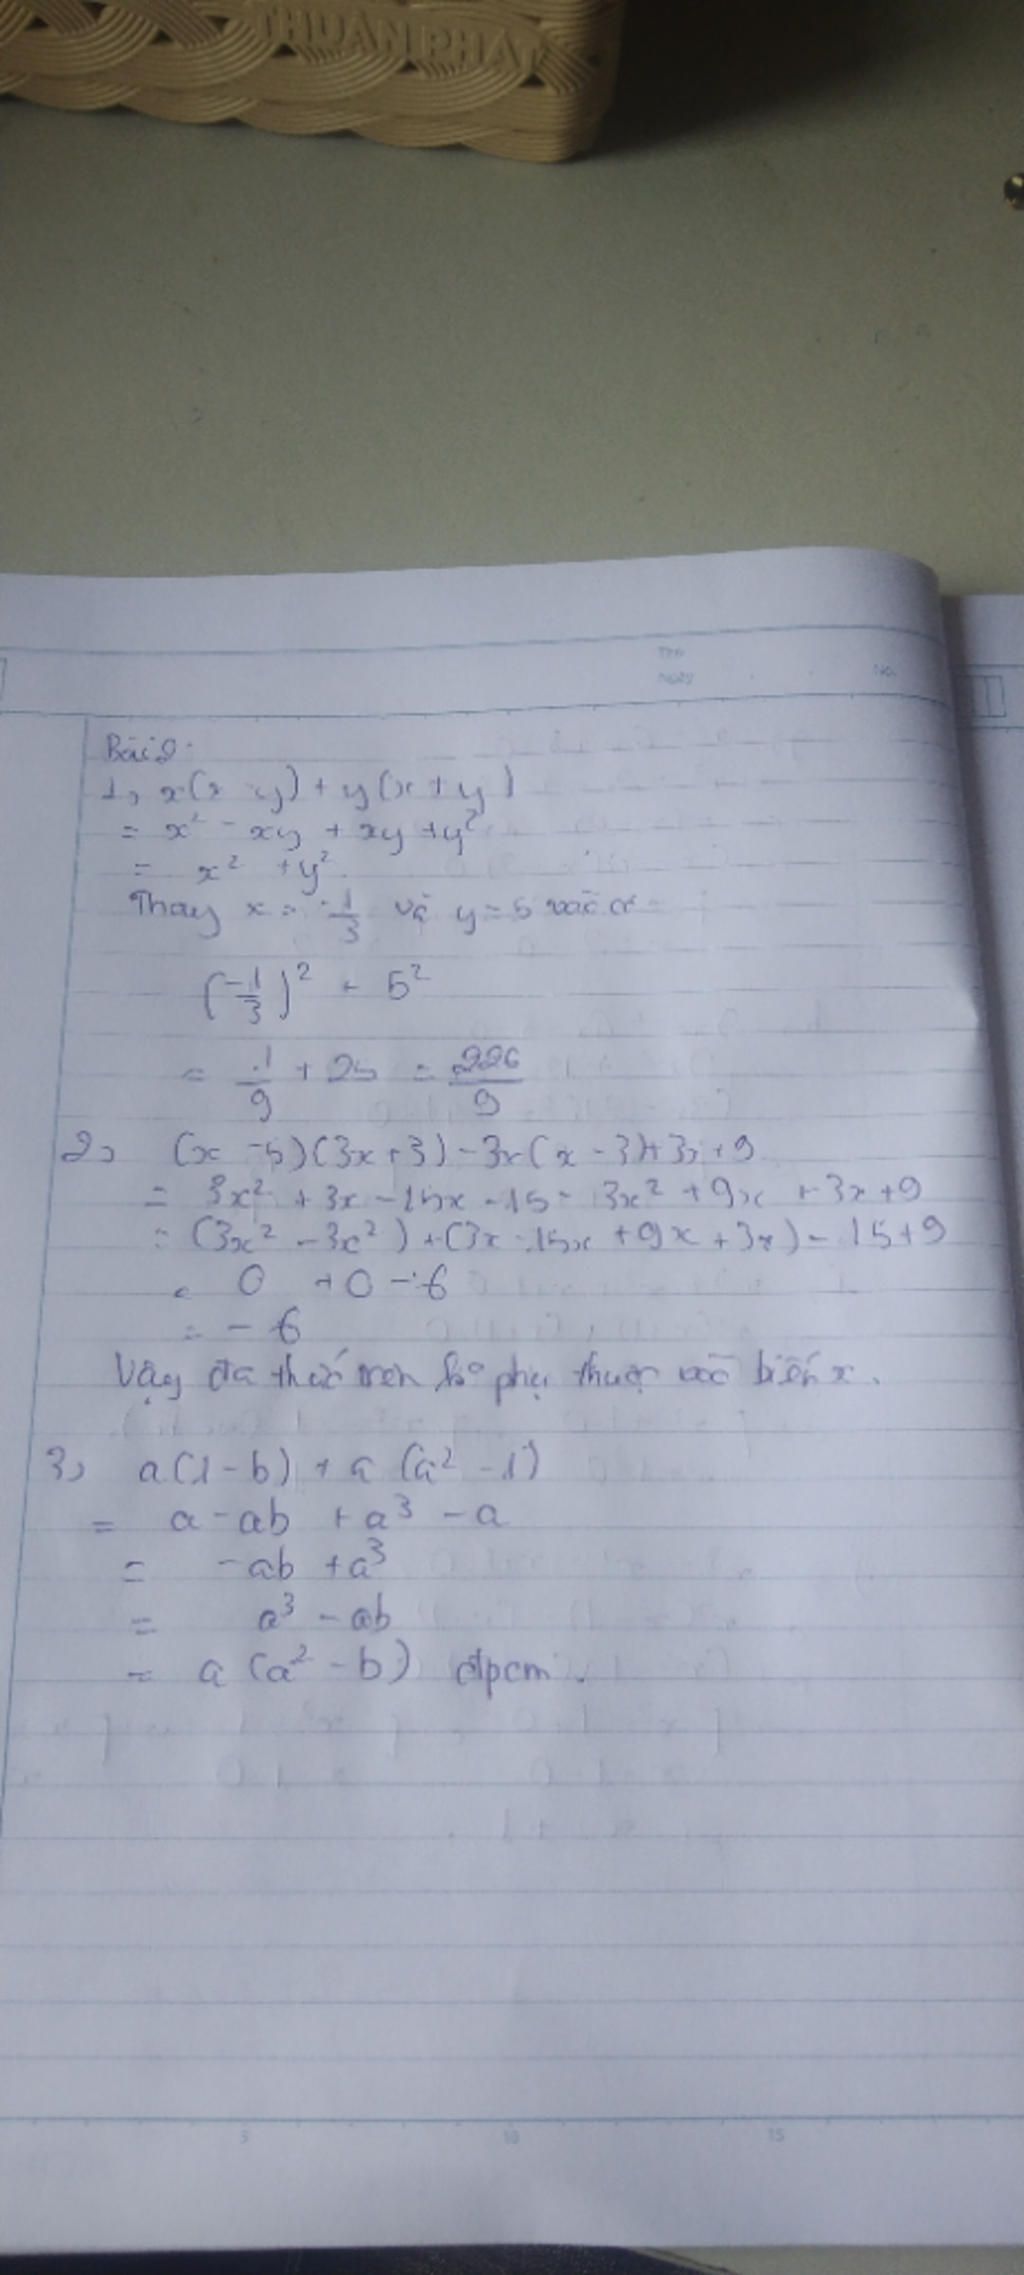 THUẬN PHÁT
Thứ
Ngày No.
Bài 2:
1, x(x - y) + y(x + y)
= x² - xy + xy + y²
= x² + y²
Thay x = -1/3 và y = 5 vào
(-1/3)² + 5²
= 1/9 + 25 = 226/9
2, (x - 5)(3x + 3) - 3x(x - 3) + 3x + 9
= 3x² + 3x - 15x - 15 - 3x² + 9x + 3x + 9
= (3x² - 3x²) + (3x - 15x + 9x + 3x) - 15 + 9
= 0 + 0 - 6
= - 6
Vậy đa thức trên ko phụ thuộc vào biến x.
3, a(1 - b) + a(a² - 1)
= a - ab + a³ - a
= -ab + a³
= a³ - ab
= a(a² - b) đpcm.
5 10 15